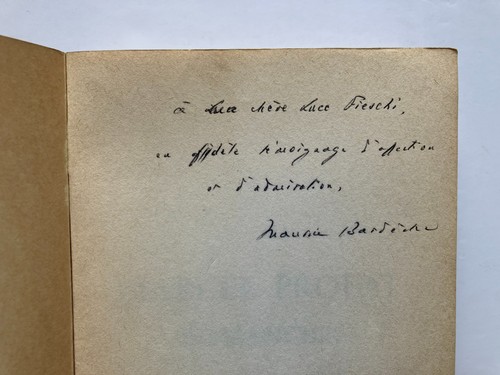 à chère Luce Fieschi,
en fidèle témoignage d'affection
et d'admiration,
Maurice Bardèche